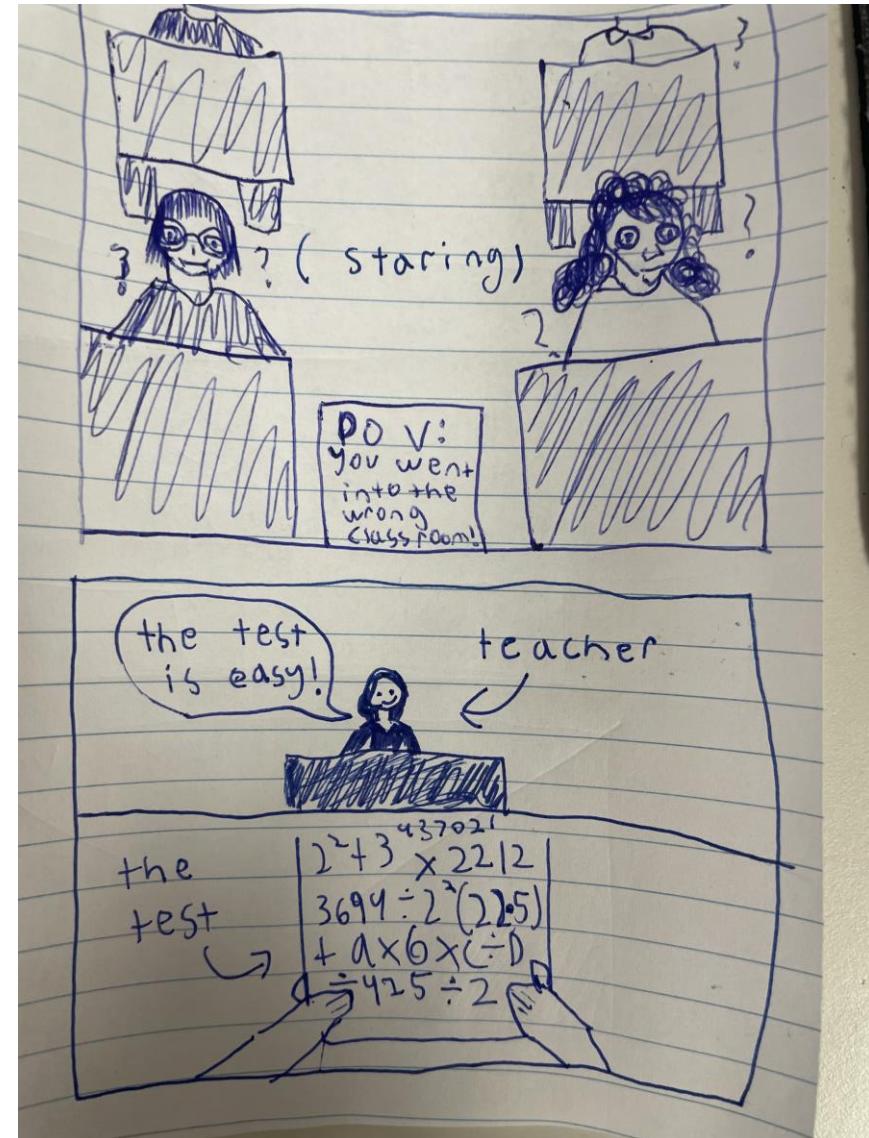 ?
? ? ( staring) ?
?
POV:
you went
into the
wrong
classroom!
the test
is easy!
teacher
the
test
2²+3⁴³⁷⁰²¹ × 2212
3694÷2²(22•5)
+ a×6×C÷D
÷425÷2